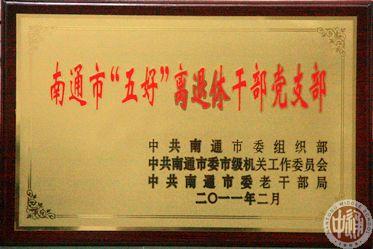 南通市“五好”离退休干部党支部
中共南通市委组织部
中共南通市委市级机关工作委员会
中共南通市委老干部局
二〇一一年二月